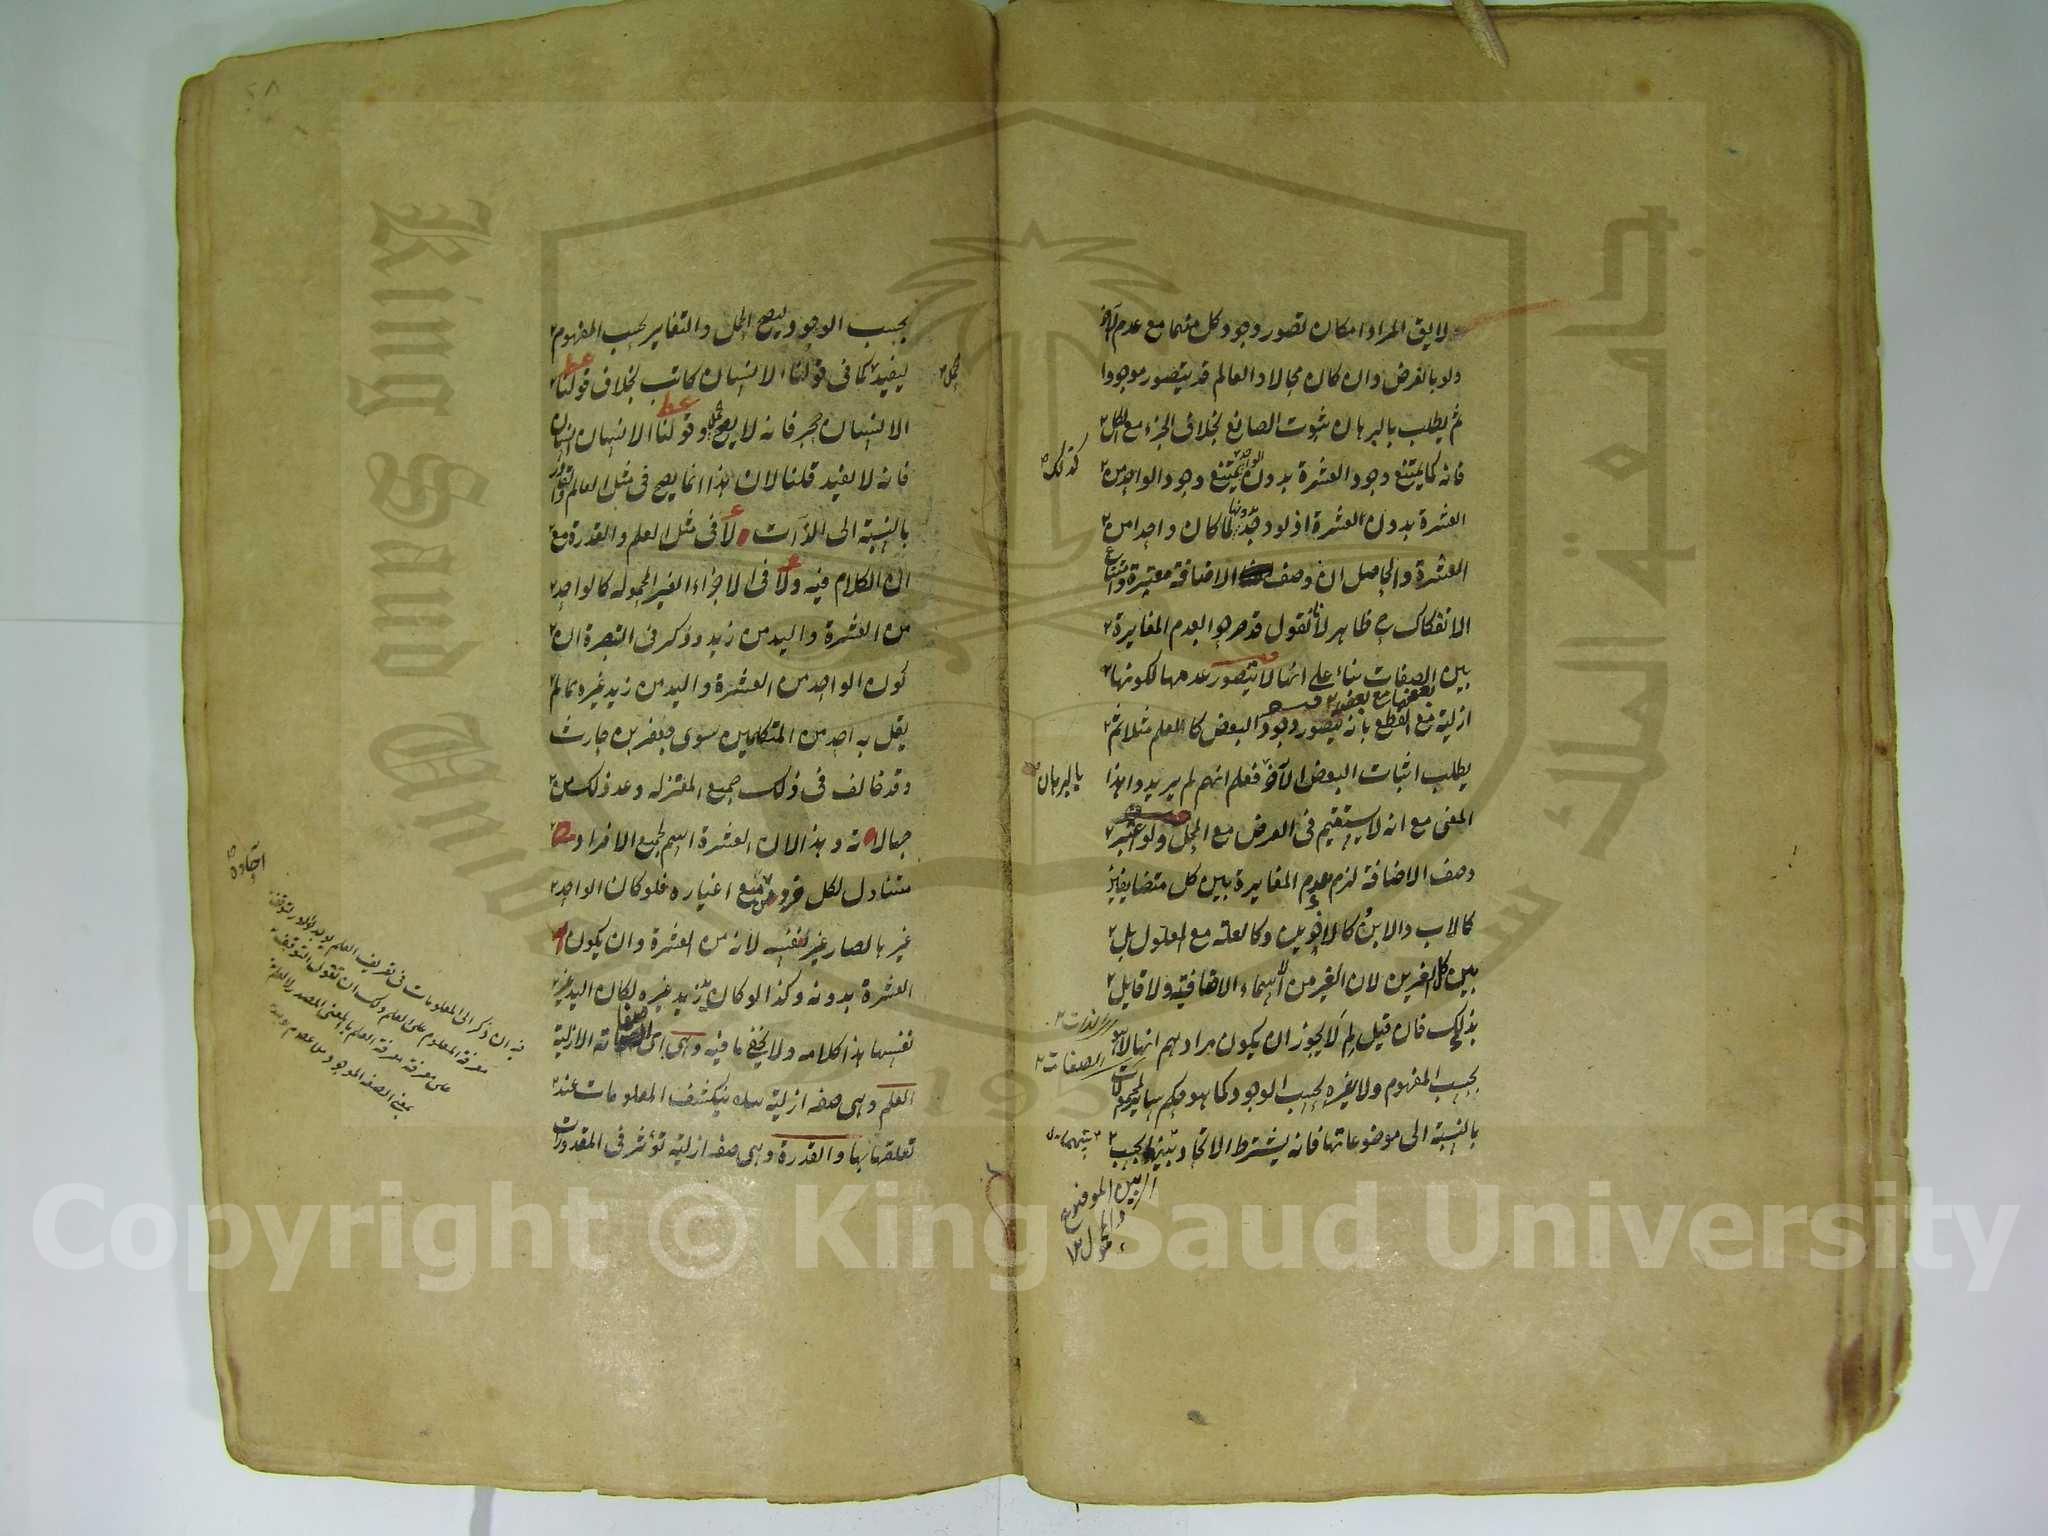 لا يق المراد امكان تصور وجود كل منهما مع عدم الآخر
ولو بالفرض وان كان محالا والعالم قد يتصور موجودا
ثم يطلب بالبرهان ثبوت الصانع بخلاف الجزء مع الكل
فانه كما يمتنع وجود العشرة بدون الواحد يمتنع وجود الواحد من
كذلك
العشرة بدون العشرة اذ لو وجد بدونها لما كان واحدا من
العشرة والحاصل ان وصف الاضافة معتبرة وامتناع
الانفكاك ح ظاهر لانا نقول قد صرحوا بعدم المغايرة
بين الصفات بناء على انها لا يتصور عدمها لكونها
بعضها مع بعض
ازلية مع القطع بانه يتصور وجود البعض كالعلم مثلا ثم
يطلب اثبات البعض الآخر فعلم انهم لم يريدوا هذا
بالبرهان
المعنى مع انه لا يستقيم فى العرض مع المحل ولو اعتبر
وصف الاضافة لزم عدم المغايرة بين كل متضايفين
كالاب والابن وكالاخوين وكالعلة مع المعلول بل
بين كل الغيرين لان الغير من الاسماء الاضافية ولا قايل
بذلك فان قيل لم لا يجوز ان يكون مرادهم انها لا هو
الصفات
بحسب المفهوم ولا غيره بحسب الوجود كما هو حكم ساير المحمولات
بالنسبة الى موضوعاتها فانه يشترط الاتحاد بينهما بحسب
اى بين الموضوع
والمحمول
٥٨
بحسب الوجود ليصح الحمل والتغاير بحسب المفهوم
ليفيد كما فى قولنا الانسان كاتب بخلاف قولنا
الحمل
الانسان حجر فانه لا يصح وقولنا الانسان انسان
فانه لا يفيد قلنا لان هذا انما يصح فى مثل العالم والقادر
بالنسبة الى الذات لا فى مثل العلم والقدرة مع
ان الكلام فيه ولا فى الاجزاء الغير المحمولة كالواحد
من العشرة واليد من زيد وذكر فى التبصرة ان
كون الواحد من العشرة واليد من زيد غيره مما لم
يقل به احد من المتكلمين سوى جعفر بن حارث
وقد خالف فى ذلك جميع المعتزلة وعد ذلك من
جهالاته وهذا لان العشرة اسم لجميع الافراد
متناول لكل فرد مع اغياره فلو كان الواحد
غيرها لصار غير نفسه لانه من العشرة وان يكون
العشرة بدونه وكذا لو كان يد زيد غيره لكان اليد غير
نفسها هذا كلامه ولا يخفى ما فيه وهى اى صفاته الازلية
العلم وهى صفة ازلية ينكشف المعلومات عند
تعلقها بها والقدرة وهى صفة ازلية تؤثر فى المقدورات
فيه ان ذكر المعلومات فى تعريف العلم
معرفة المعلوم على العلم
على معرفة
Copyright © King Saud University
King Saud University
جامعة الملك سعود
195